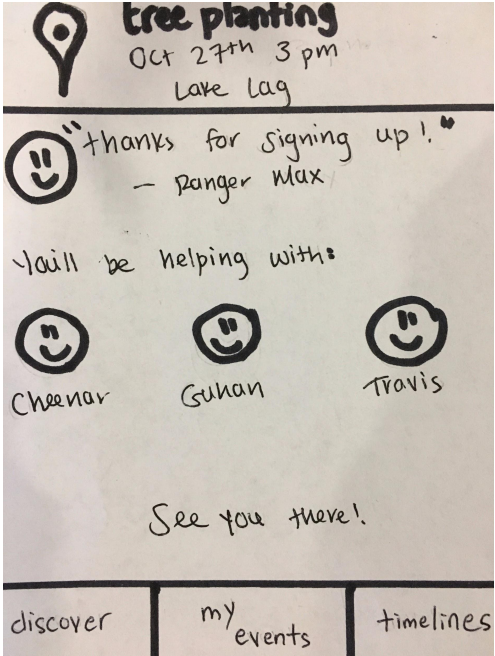 tree planting
Oct 27th 3 pm
Lake Lag
"thanks for signing up!"
— Ranger Max
You'll be helping with:
Cheenar
Guhan
Travis
See you there!
discover
my events
timelines